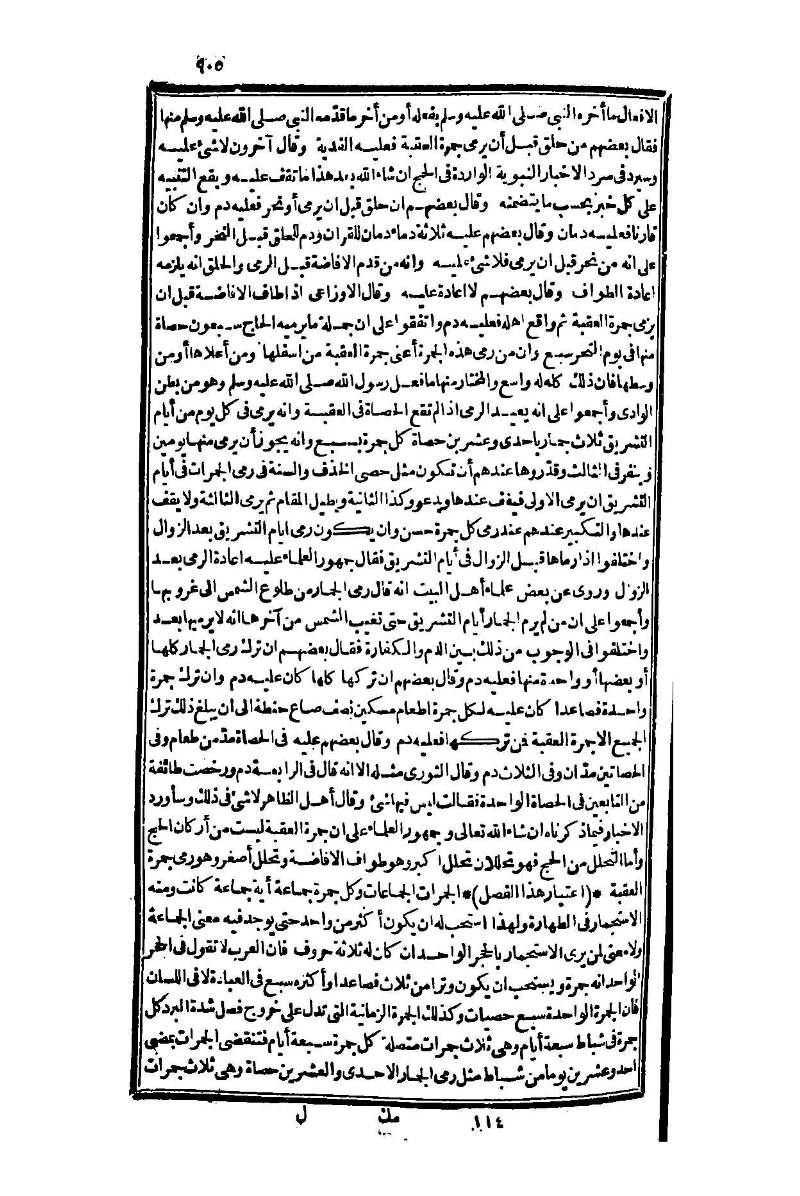 ٩٠٥
الافعال ما أخره النبي صلى الله عليه وسلم بفعله أو من أخر ما قدّمه النبي صلى الله عليه وسلم منها
فقال بعضهم من حلق قبل أن يرمى جمرة العقبة فعليه الفدية وقال آخرون لا شئ عليه
وسيرد في سرد الاخبار النبوية الواردة في الحج ان شاء الله بعد هذا ما تقف عليه ويقع التنبيه
على كل خبر بحسب ما يتضمنه وقال بعضهم ان حلق قبل ان يرمى أو نحر فعليه دم وان كان
قارنا فعليه دمان وقال بعضهم عليه ثلاثة دماء دمان للقران ودم للحلق قبل النحر وأجمعوا
على انه من نحر قبل ان يرمى فلا شئ عليه وانه من قدم الافاضة قبل الرمى والحلق انه يلزمه
اعادة الطواف وقال بعضهم لا اعادة عليه وقال الاوزاعى اذا طاف الافاضة قبل ان
يرمى جمرة العقبة ثم واقع اهله فعليه دم واتفقوا على ان جملة ما يرميه الحاج سبعون حصاة
منها في يوم النحر سبع وان من رمى هذه الجمرة أعنى جمرة العقبة من اسفلها ومن أعلاها أو من
وسطها فان ذلك كله له واسع والمختار منها ما فعل رسول الله صلى الله عليه وسلم وهو من بطن
الوادى وأجمعوا على انه يعيد الرمى اذا لم تقع الحصاة في العقبة وانه يرمى في كل يوم من أيام
التشريق ثلاث جمار باحدى وعشرين حصاة كل جمرة بسبع وانه يجوز أن يرمى منها يومين
وينفر في الثالث وقدّروها عندهم أن تكون مثل حصى الخذف والسنة في رمى الجمرات في أيام
التشريق ان يرمى الاولى فيقف عندها ويدعو وكذا الثانية ويطيل المقام ثم يرمى الثالثة ولا يقف
عندها والتكبير عندهم عند رمى كل جمرة حسن وان يكون رمى ايام التشريق بعد الزوال
واختلفوا اذا رماها قبل الزوال في أيام التشريق فقال جمهور العلماء عليه اعادة الرمى بعد
الزوال وروى عن بعض علماء أهل البيت انه قال رمى الجمار من طلوع الشمس الى غروبها
وأجمعوا على ان من لم يرم الجمار أيام التشريق حتى تغيب الشمس من آخرها انه لا يرميها بعد
واختلفوا في الوجوب من ذلك بين الدم والكفارة فقال بعضهم ان ترك رمى الجمار كلها
أو بعضها أو واحدة منها فعليه دم وقال بعضهم ان تركها كلها كان عليه دم وان ترك جمرة
واحدة فصاعدا كان عليه لكل جمرة اطعام مسكين نصف صاع حنطة الى ان يبلغ ذلك ترك
الجميع الا جمرة العقبة فمن تركها فعليه دم وقال بعضهم عليه في الحصاة مدّ من طعام وفي
الحصاتين مدّان وفي الثلاث دم وقال الثورى مثله الا انه قال في الرابعة دم ورخصت طائفة
من التابعين في الحصاة الواحدة فقالت ليس فيها شئ وقال أهل الظاهر لا شئ في ذلك وسأورد
الاخبار فيما ذكرناه ان شاء الله تعالى وجمهور العلماء على ان جمرة العقبة ليست من أركان الحج
وأما التحلل من الحج فهو تحللان تحلل اكبر وهو طواف الافاضة وتحلل أصغر وهو رمى جمرة
العقبة *(اعتبار هذا الفصل)* الجمرات الجماعات وكل جمرة جماعة أية جماعة كانت ومنه
الاستجمار في الطهارة ولهذا استحب له ان يكون أكثر من واحد حتى يوجد فيه معنى الجماعة
ولا معنى لمن يرى الاستجمار بالحجر الواحد ان كان له ثلاثة حروف فان العرب لا تقول في الحجر
الواحد انه جمرة ويستحب ان يكون وترا من ثلاث فصاعدا وأكثره سبع في العبادة لا في اللسان
فان الجمرة الواحدة سبع حصيات وكذلك الجمرة الزمانية التي تدل على خروج فصل شدة البرد كل
جمرة في شباط سبعة أيام وهي ثلاث جمرات متصلة كل جمرة سبعة أيام فتنقضى الجمرات بمضى
احد وعشرين يوما من شباط مثل رمى الجمار الاحدى والعشرين حصاة وهي ثلاث جمرات
١١٤ مك ل